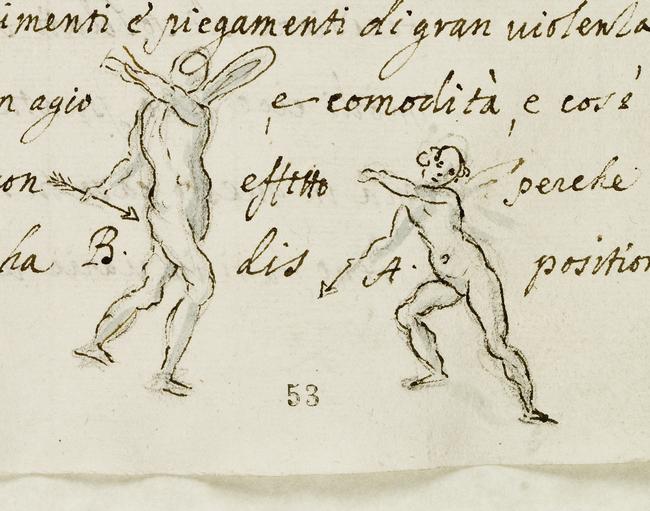 imenti e piegamenti di gran violenza
n agio e comodità, e così
con effetto perche
ha B. dis A. position
53